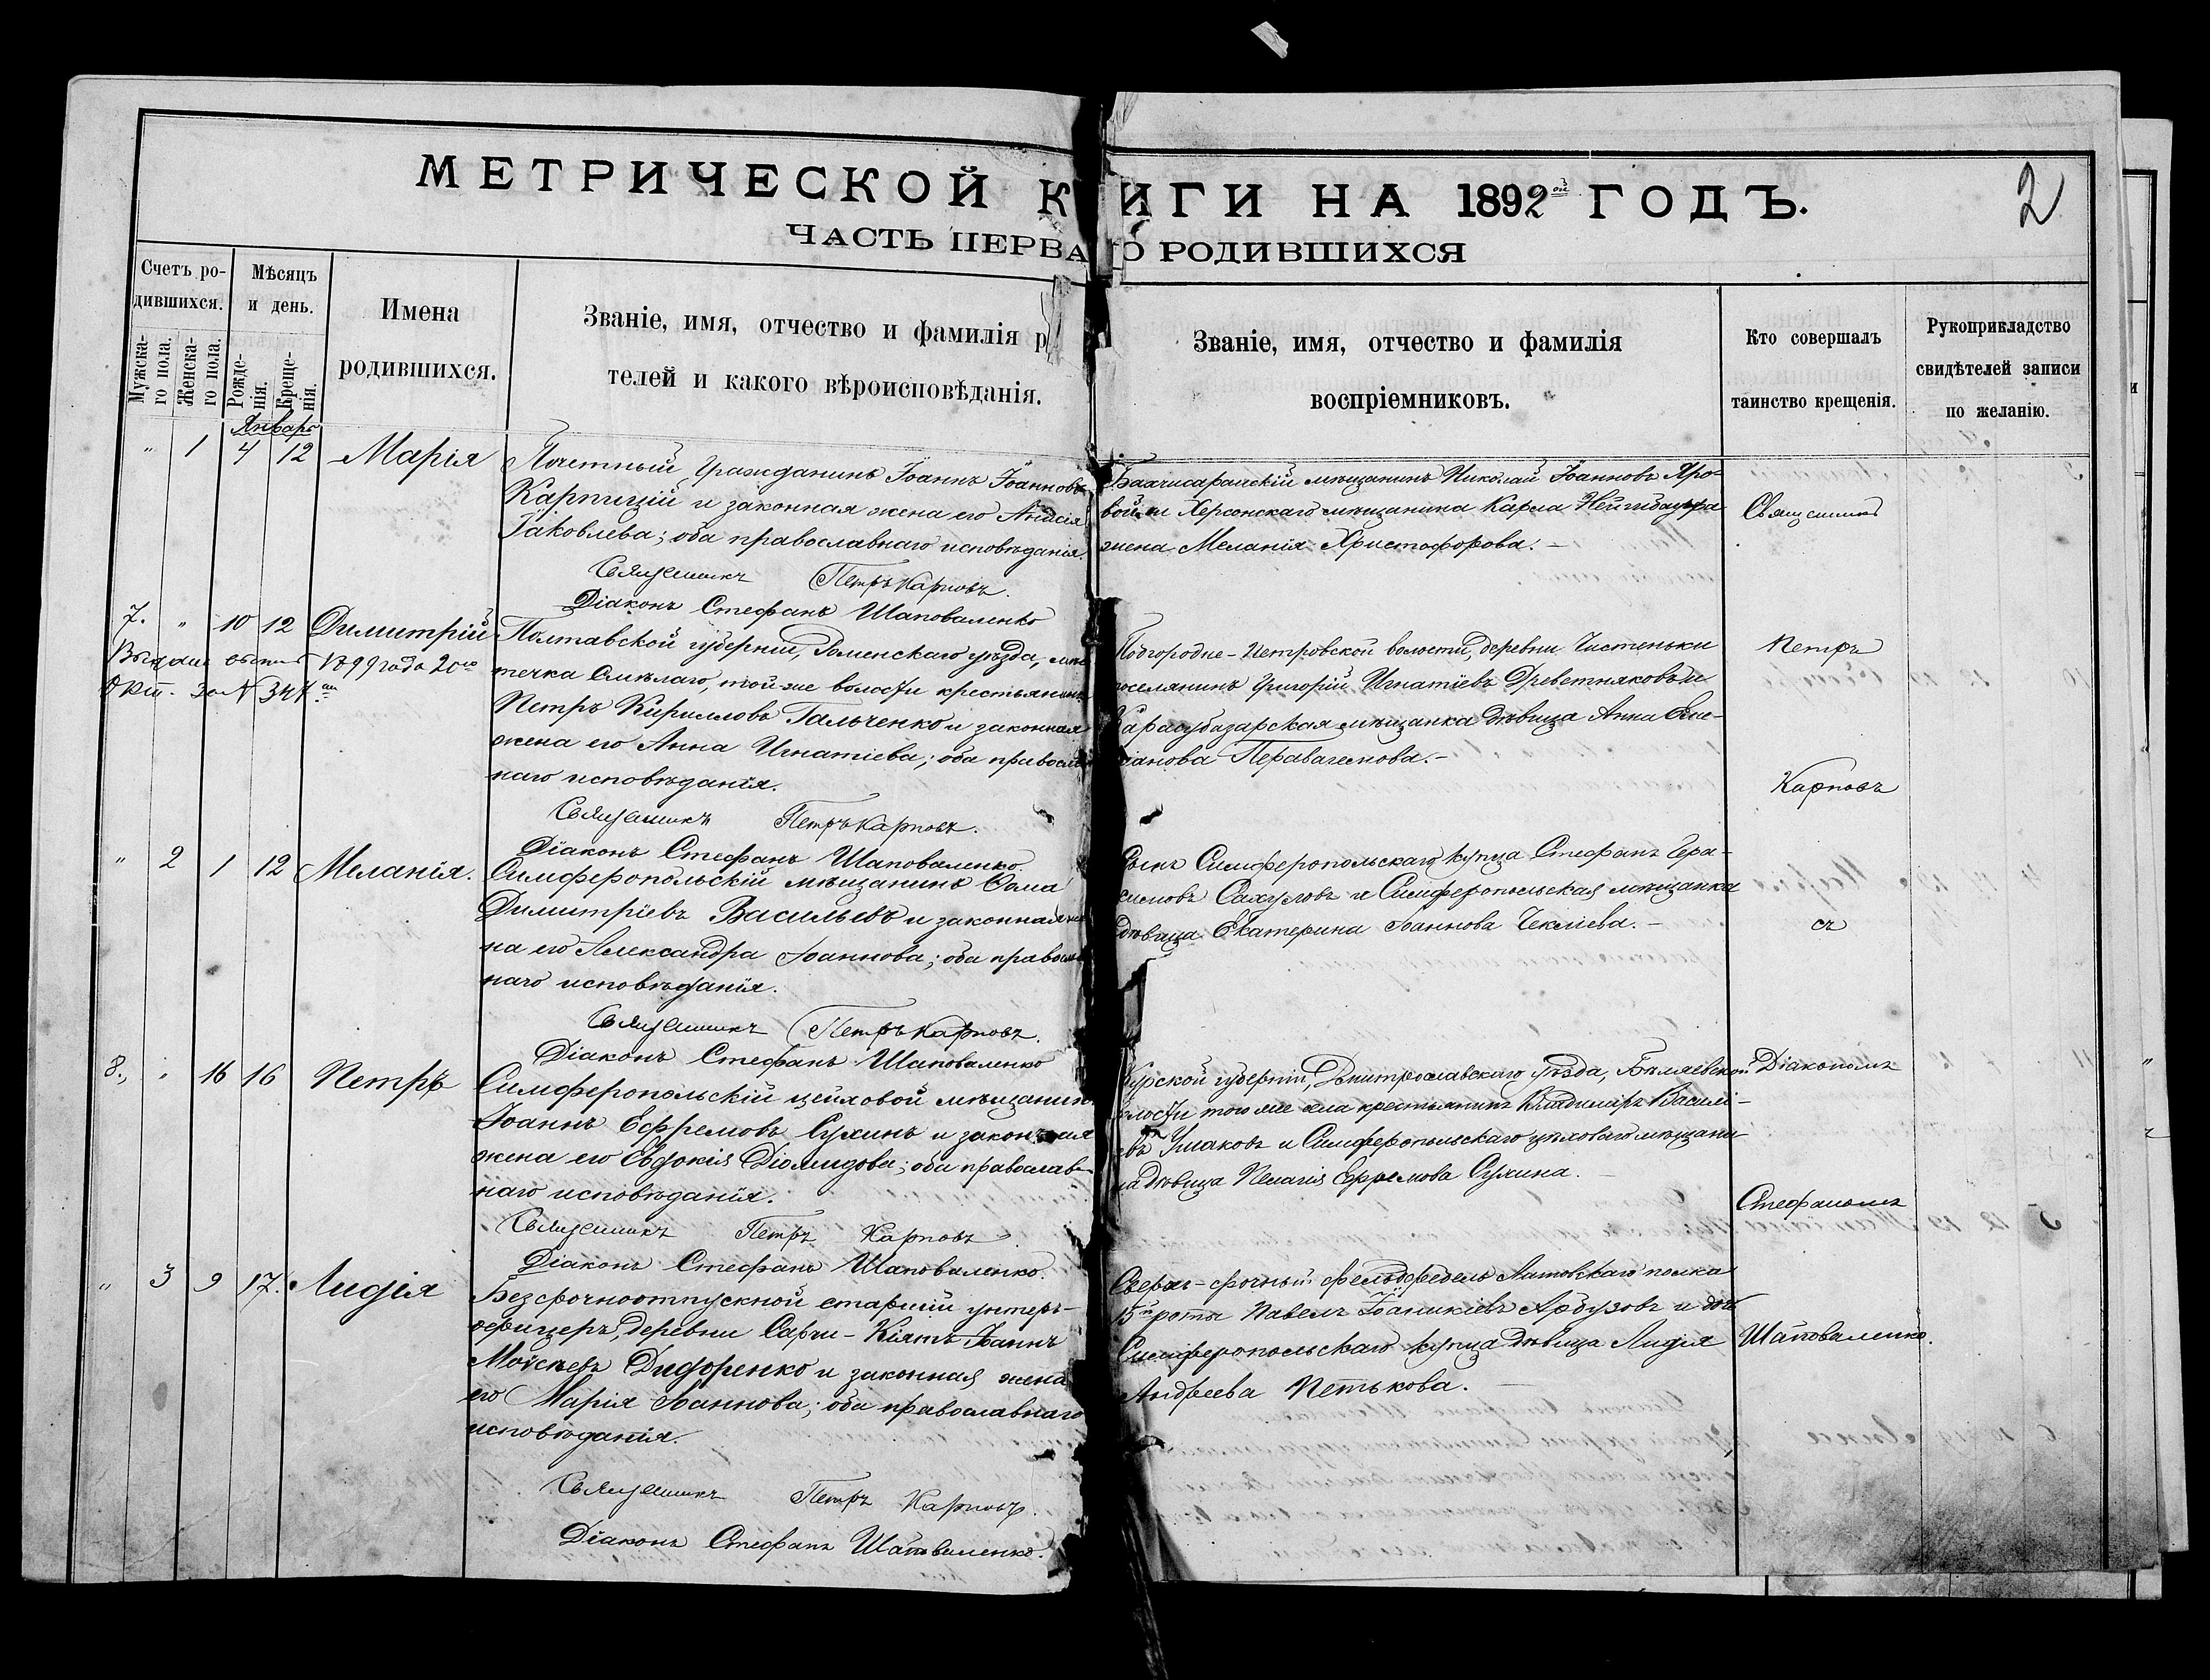 МЕТРИЧЕСКОЙ К ИГИ НА 1892ой ГОДЪ.
2
ЧАСТЬ ПЕРВА О РОДИВШИХСЯ
Счетъ ро-
дившихся.
Мужска-
го пола.
Женска-
го пола.
Мѣсяцъ
и день.
Рожде-
нія.
Креще-
нія.
Имена
родившихся.
Званіе, имя, отчество и фамилія р
телей и какого вѣроисповѣданія.
Званіе, имя, отчество и фамилія
воспріемниковъ.
Кто совершалъ
таинство крещенія.
Рукоприкладство
свидѣтелей записи
по желанію.
Январь
" 1 4 12 Марія
Почетный Гражданинъ Іоаннъ Іоанновъ
и законная жена его
Іаковлева; оба православнаго исповѣданія.
Священникъ Петръ Карповъ.
Діаконъ Стефанъ Шаповаленко
мѣщанинъ Николай Іоанновъ Яро-
вой и Херсонскаго мѣщанина Карла
жена Меланія Христофорова. —
Священникъ
7. " 10 12 Димитрій
1899 года 20го
Окт. за № 347.
Полтавской губерніи, Роменскаго уѣзда, мѣс
течка Смѣлаго, той-же волости крестьянинъ
Петръ Кирилловъ Гальченко и законная
жена его Анна Игнатіева; оба правосла
наго исповѣданія.
Священникъ Петръ Карповъ.
Діаконъ Стефанъ Шаповаленко.
Подгородне-Петровской волости, деревни Чистеньки
поселянинъ Григорій Игнатіевъ Древетняковъ и
Карасубазарская мѣщанка дѣвица Анна
Петръ
Карповъ
" 2 1 12 Меланія.
Симферопольскій мѣщанинъ Ѳома
Димитріевъ Васильевъ и законная же
на его Александра Іоаннова; оба правосла
наго исповѣданія.
Священникъ Петръ Карповъ.
Діаконъ Стефанъ Шаповаленко
Сынъ Симферопольскаго купца Стефанъ Гера-
симовъ и Симферопольская мѣщанка
дѣвица Екатерина Іоаннова —
съ
8. " 16 16 Петръ
Симферопольскій цеховой мѣщанинъ
Іоаннъ Ефремовъ Сухинъ и законная
жена его Евдокія Діомидова; оба православ-
наго исповѣданія.
Священникъ Петръ Карповъ
Діаконъ Стефанъ Шаповаленко.
Курской губерніи, Дмитрославскаго уѣзда, Бѣляевской
волости того же села крестьянинъ Владимиръ Василі-
евъ Ушаковъ и Симферопольскаго цеховаго мѣщани-
на дѣвица Пелагія Ефремова Сухина.
Діакономъ
Стефаномъ
" 3 9 17. Лидія
Безсрочноотпускной старшій унтеръ-
офицеръ, деревни Сарчи-Кіятъ Іоаннъ
Моисѣевъ и законная жена
его Марія Іоаннова; оба православнаго
исповѣданія.
Священникъ Петръ Карповъ.
Діаконъ Стефанъ Шаповаленко.
Сверхъ-срочный фельдфебель Литовскаго полка
5й роты Павелъ Іоаникіевъ Арбузовъ и дочь
Симферопольскаго купца дѣвица Лидія
Андреева Петькова. —
Шаповаленко.